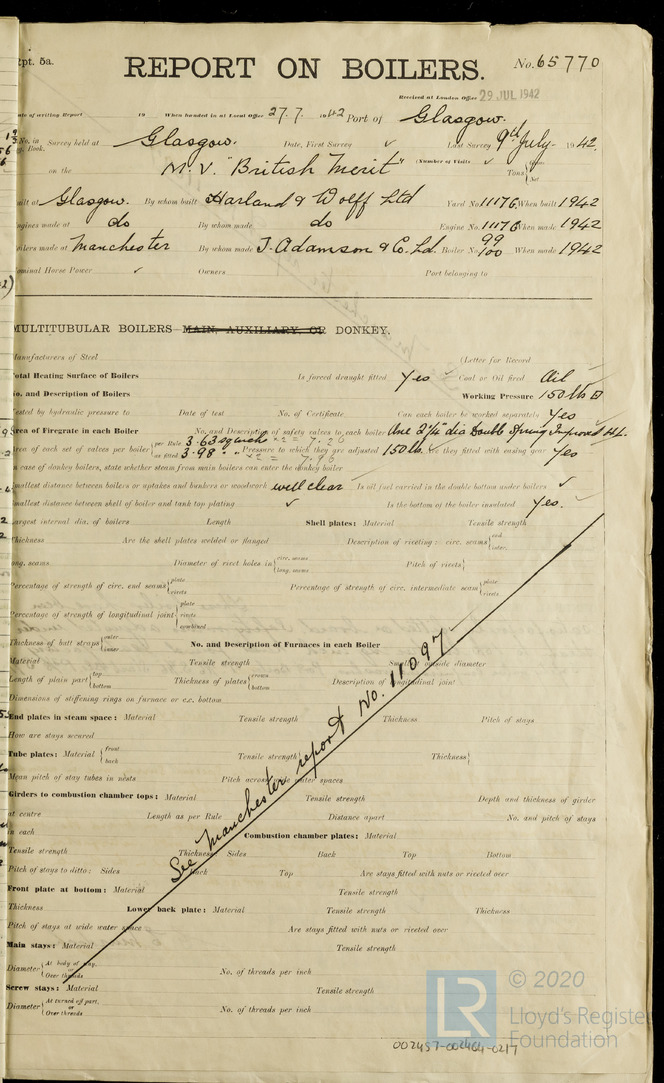 Rpt. 5a.
REPORT ON BOILERS.
No. 65770
Received at London Office 29 JUL 1942
Date of writing Report 19 When handed in at Local Office 27.7.1942 Port of Glasgow.
No. in Survey held at Glasgow. Date, First Survey ✓ Last Survey 9th July- 1942.
Reg. Book.
on the M.V. "British Merit" (Number of Visits ✓ Tons { Gross Net
Built at Glasgow. By whom built Harland & Wolff Ltd Yard No. 1117G When built 1942
Engines made at do By whom made do Engine No. 1117G When made 1942
Boilers made at Manchester By whom made J. Adamson & Co. Ld. Boiler No. 99 100 When made 1942
Nominal Horse Power ✓ Owners Port belonging to
MULTITUBULAR BOILERS MAIN, AUXILIARY, OR DONKEY.
Manufacturers of Steel (Letter for Record
Total Heating Surface of Boilers Is forced draught fitted Yes Coal or Oil fired Oil
No. and Description of Boilers Working Pressure 150 lbs
Tested by hydraulic pressure to Date of test No. of Certificate Can each boiler be worked separately Yes
Area of Firegrate in each Boiler No. and Description of safety valves to each boiler One 2¼" dia Double Spring Improved
Area of each set of valves per boiler { per Rule 3.63 sq inches ×2 = 7.26 as fitted 3.98 " " ×2 = 7.96 Pressure to which they are adjusted 150 lbs. Are they fitted with easing gear Yes
In case of donkey boilers, state whether steam from main boilers can enter the donkey boiler
Smallest distance between boilers or uptakes and bunkers or woodwork well clear Is oil fuel carried in the double bottom under boilers ✓
Smallest distance between shell of boiler and tank top plating ✓ Is the bottom of the boiler insulated Yes.
Largest internal dia. of boilers Length Shell plates: Material Tensile strength
Thickness Are the shell plates welded or flanged Description of riveting: circ. seams { end inter.
long. seams Diameter of rivet holes in { circ. seams long. seams Pitch of rivets {
Percentage of strength of circ. end seams { plate rivets Percentage of strength of circ. intermediate seam { plate rivets
Percentage of strength of longitudinal joint { plate rivets combined
Thickness of butt straps { outer inner No. and Description of Furnaces in each Boiler
Material Tensile strength Smallest outside diameter
Length of plain part { top bottom Thickness of plates { crown bottom Description of longitudinal joint
Dimensions of stiffening rings on furnace or c.c. bottom
End plates in steam space: Material Tensile strength Thickness Pitch of stays
How are stays secured
Tube plates: Material { front back Tensile strength { Thickness {
Mean pitch of stay tubes in nests Pitch across wide water spaces
Girders to combustion chamber tops: Material Tensile strength Depth and thickness of girder
at centre Length as per Rule Distance apart No. and pitch of stays
in each Combustion chamber plates: Material
Tensile strength Thickness: Sides Back Top Bottom
Pitch of stays to ditto: Sides Back Top Are stays fitted with nuts or riveted over
Front plate at bottom: Material Tensile strength
Thickness Lower back plate: Material Tensile strength Thickness
Pitch of stays at wide water space Are stays fitted with nuts or riveted over
Main stays: Material Tensile strength
Diameter { At body of stay, or Over threads No. of threads per inch
Screw stays: Material Tensile strength
Diameter { At turned off part, or Over threads No. of threads per inch
See Manchester report No. 11097
LR
© 2020
Lloyd's Register
Foundation
002457-002464-0217